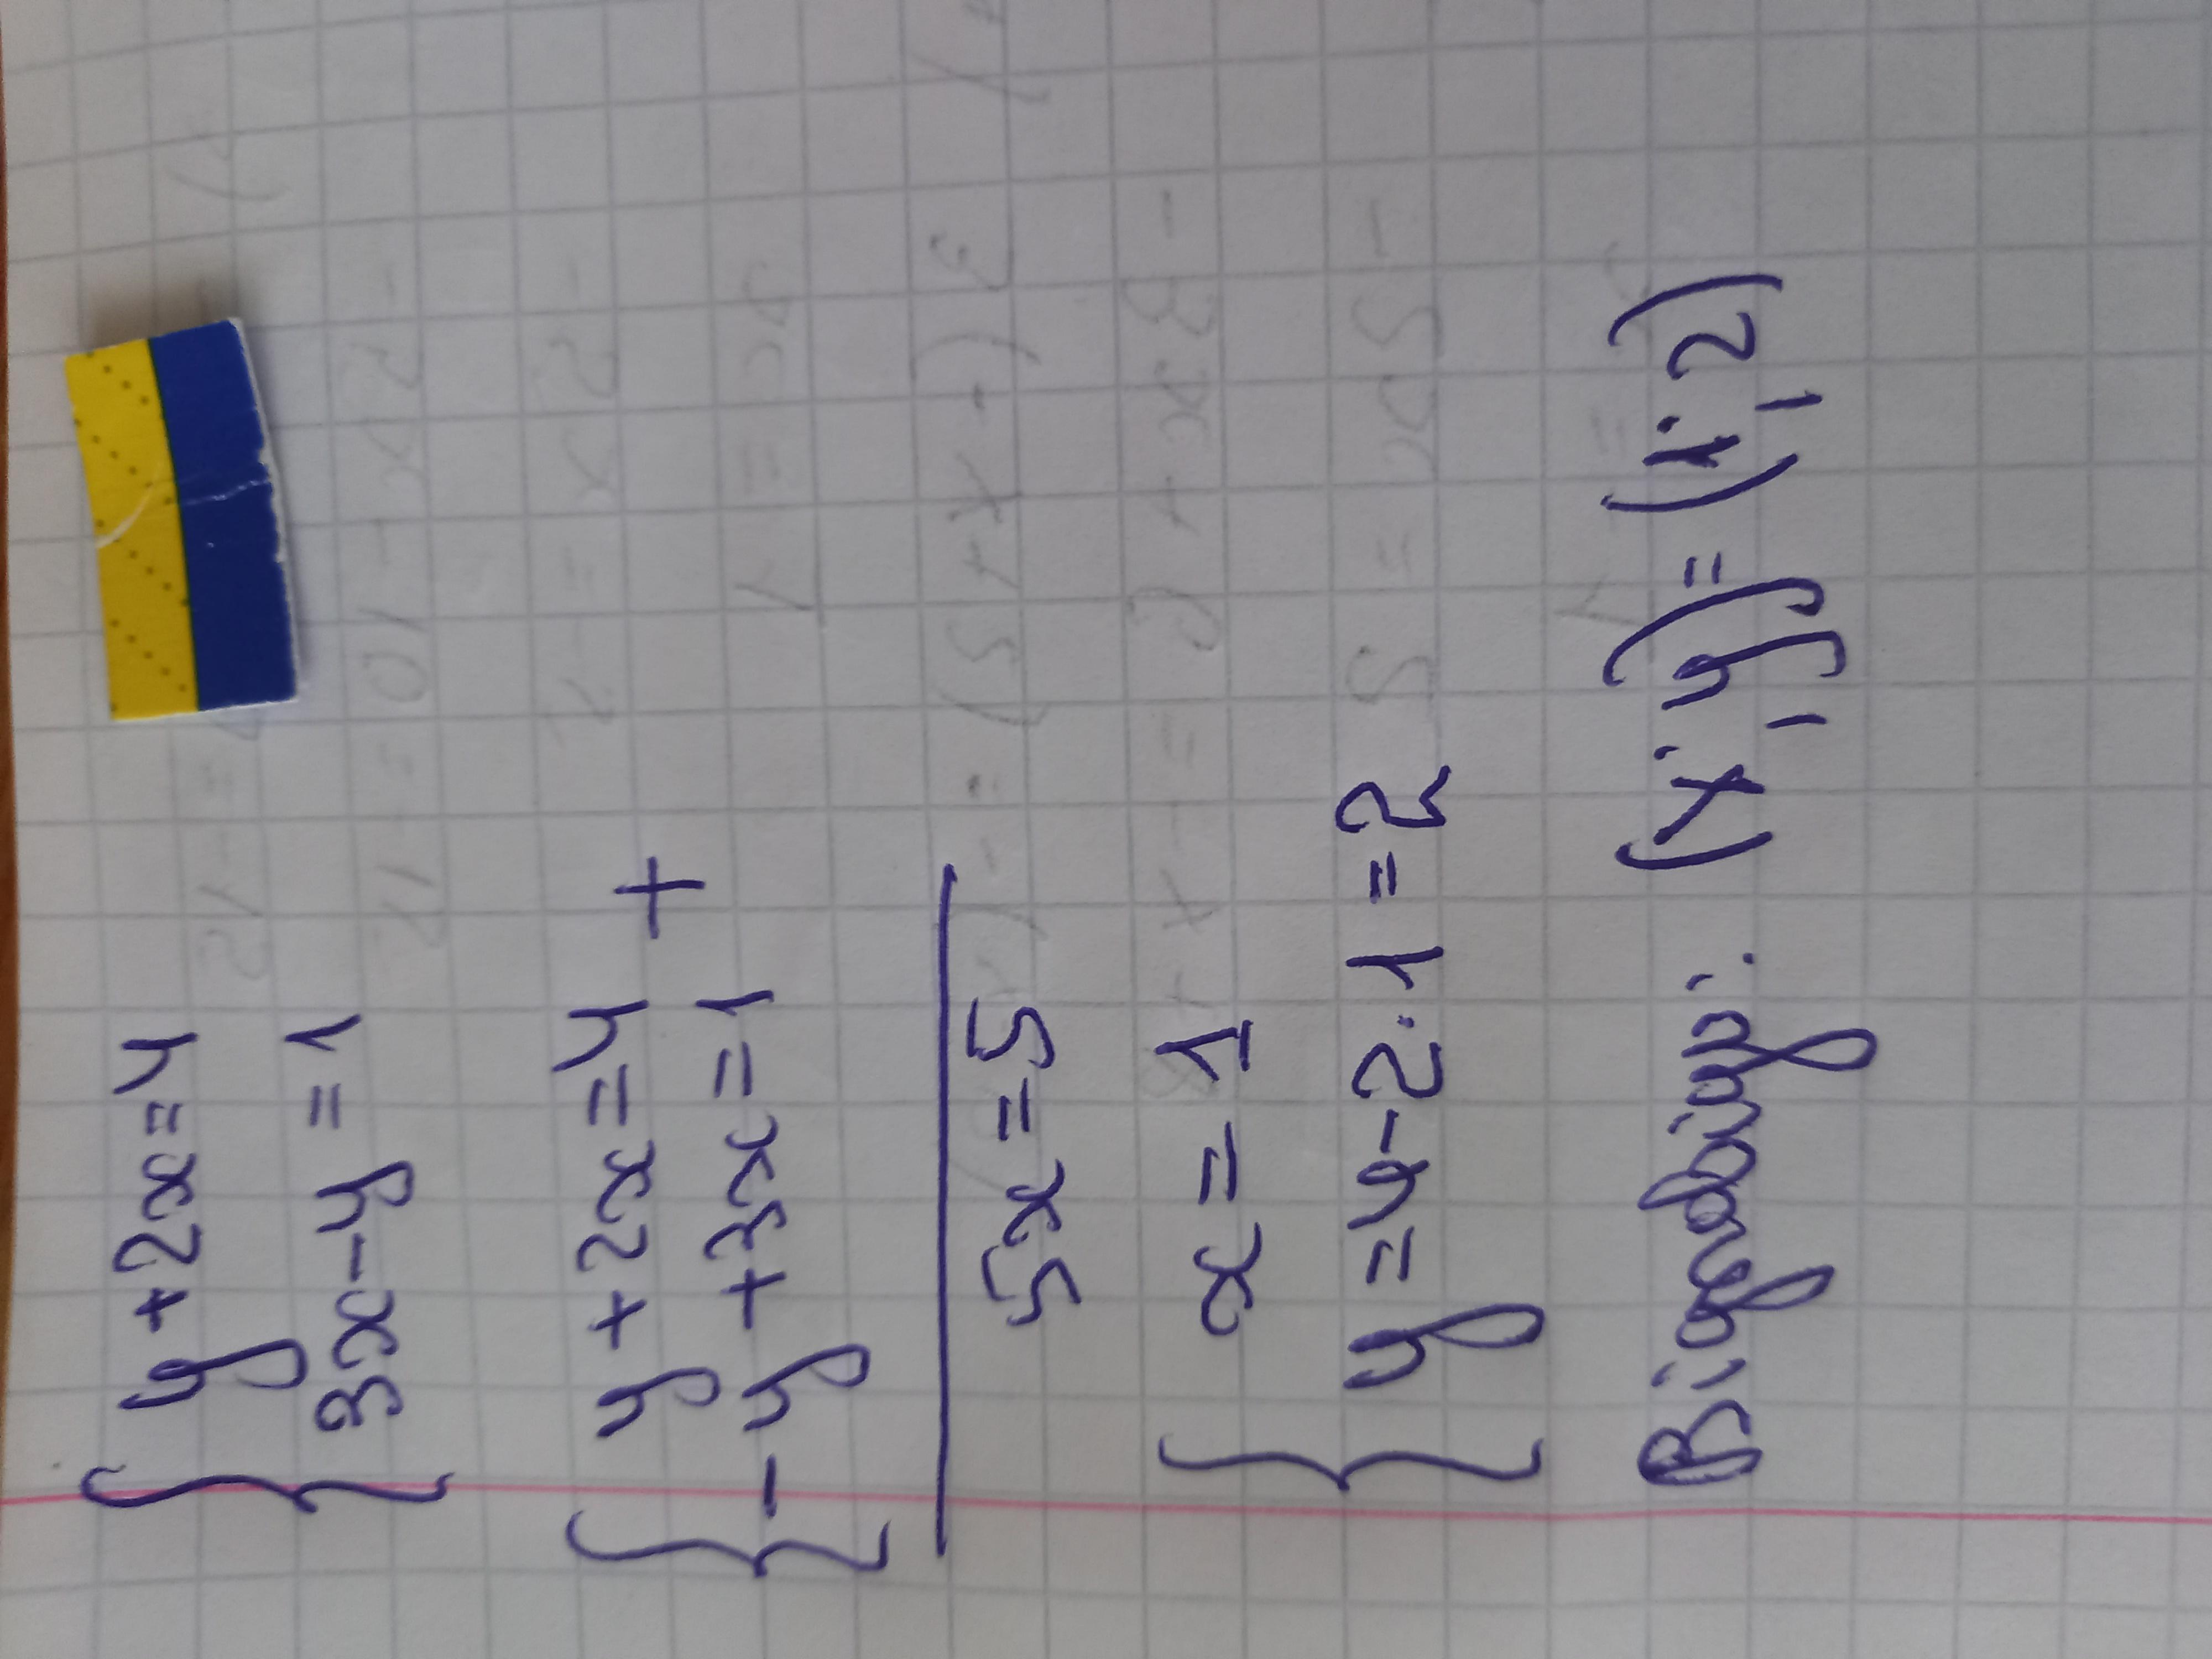 { y + 2x = 4
3x - y = 1
{ y + 2x = 4 +
- y + 3x = 1
5x = 5
{ x = 1
y = 4 - 2 · 1 = 2
Відповідь: (x; y) = (1; 2)